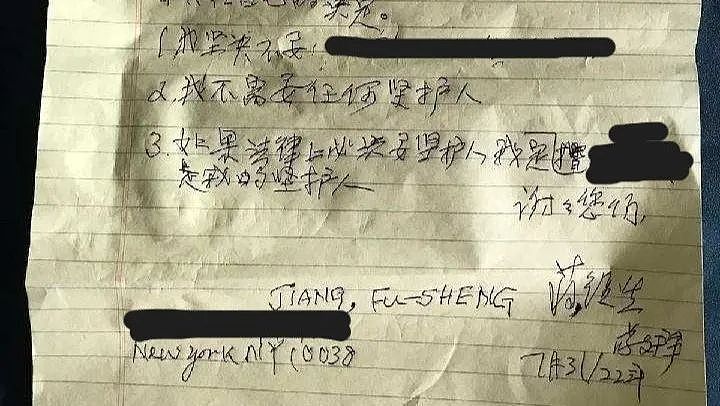 决定。
1. 我坚决不要:
2. 我不需要任何坚护人
3. 如果法律上必决要坚护人, 我是
是我的坚护人
谢谢您们,
JIANG, FU-SHENG 蒋
New York NY 10038
7月31/22年